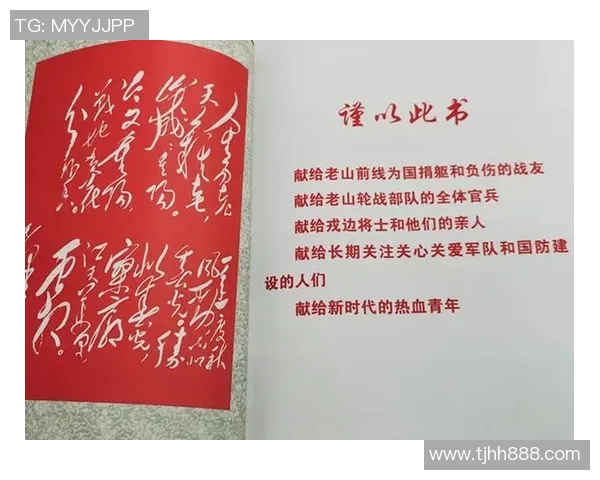 TG: MYYJJPP
人生易老
天难老，
岁岁重阳。
今又重阳，
战地黄花
分外香。
一年一度秋
风劲，不似
春光。胜
似春光，
寥廓
江天万里
霜。
谨以此书
献给老山前线为国捐躯和负伤的战友
献给老山轮战部队的全体官兵
献给戍边将士和他们的亲人
献给长期关注关心关爱军队和国防建
设的人们
献给新时代的热血青年
www.tjhh888.com